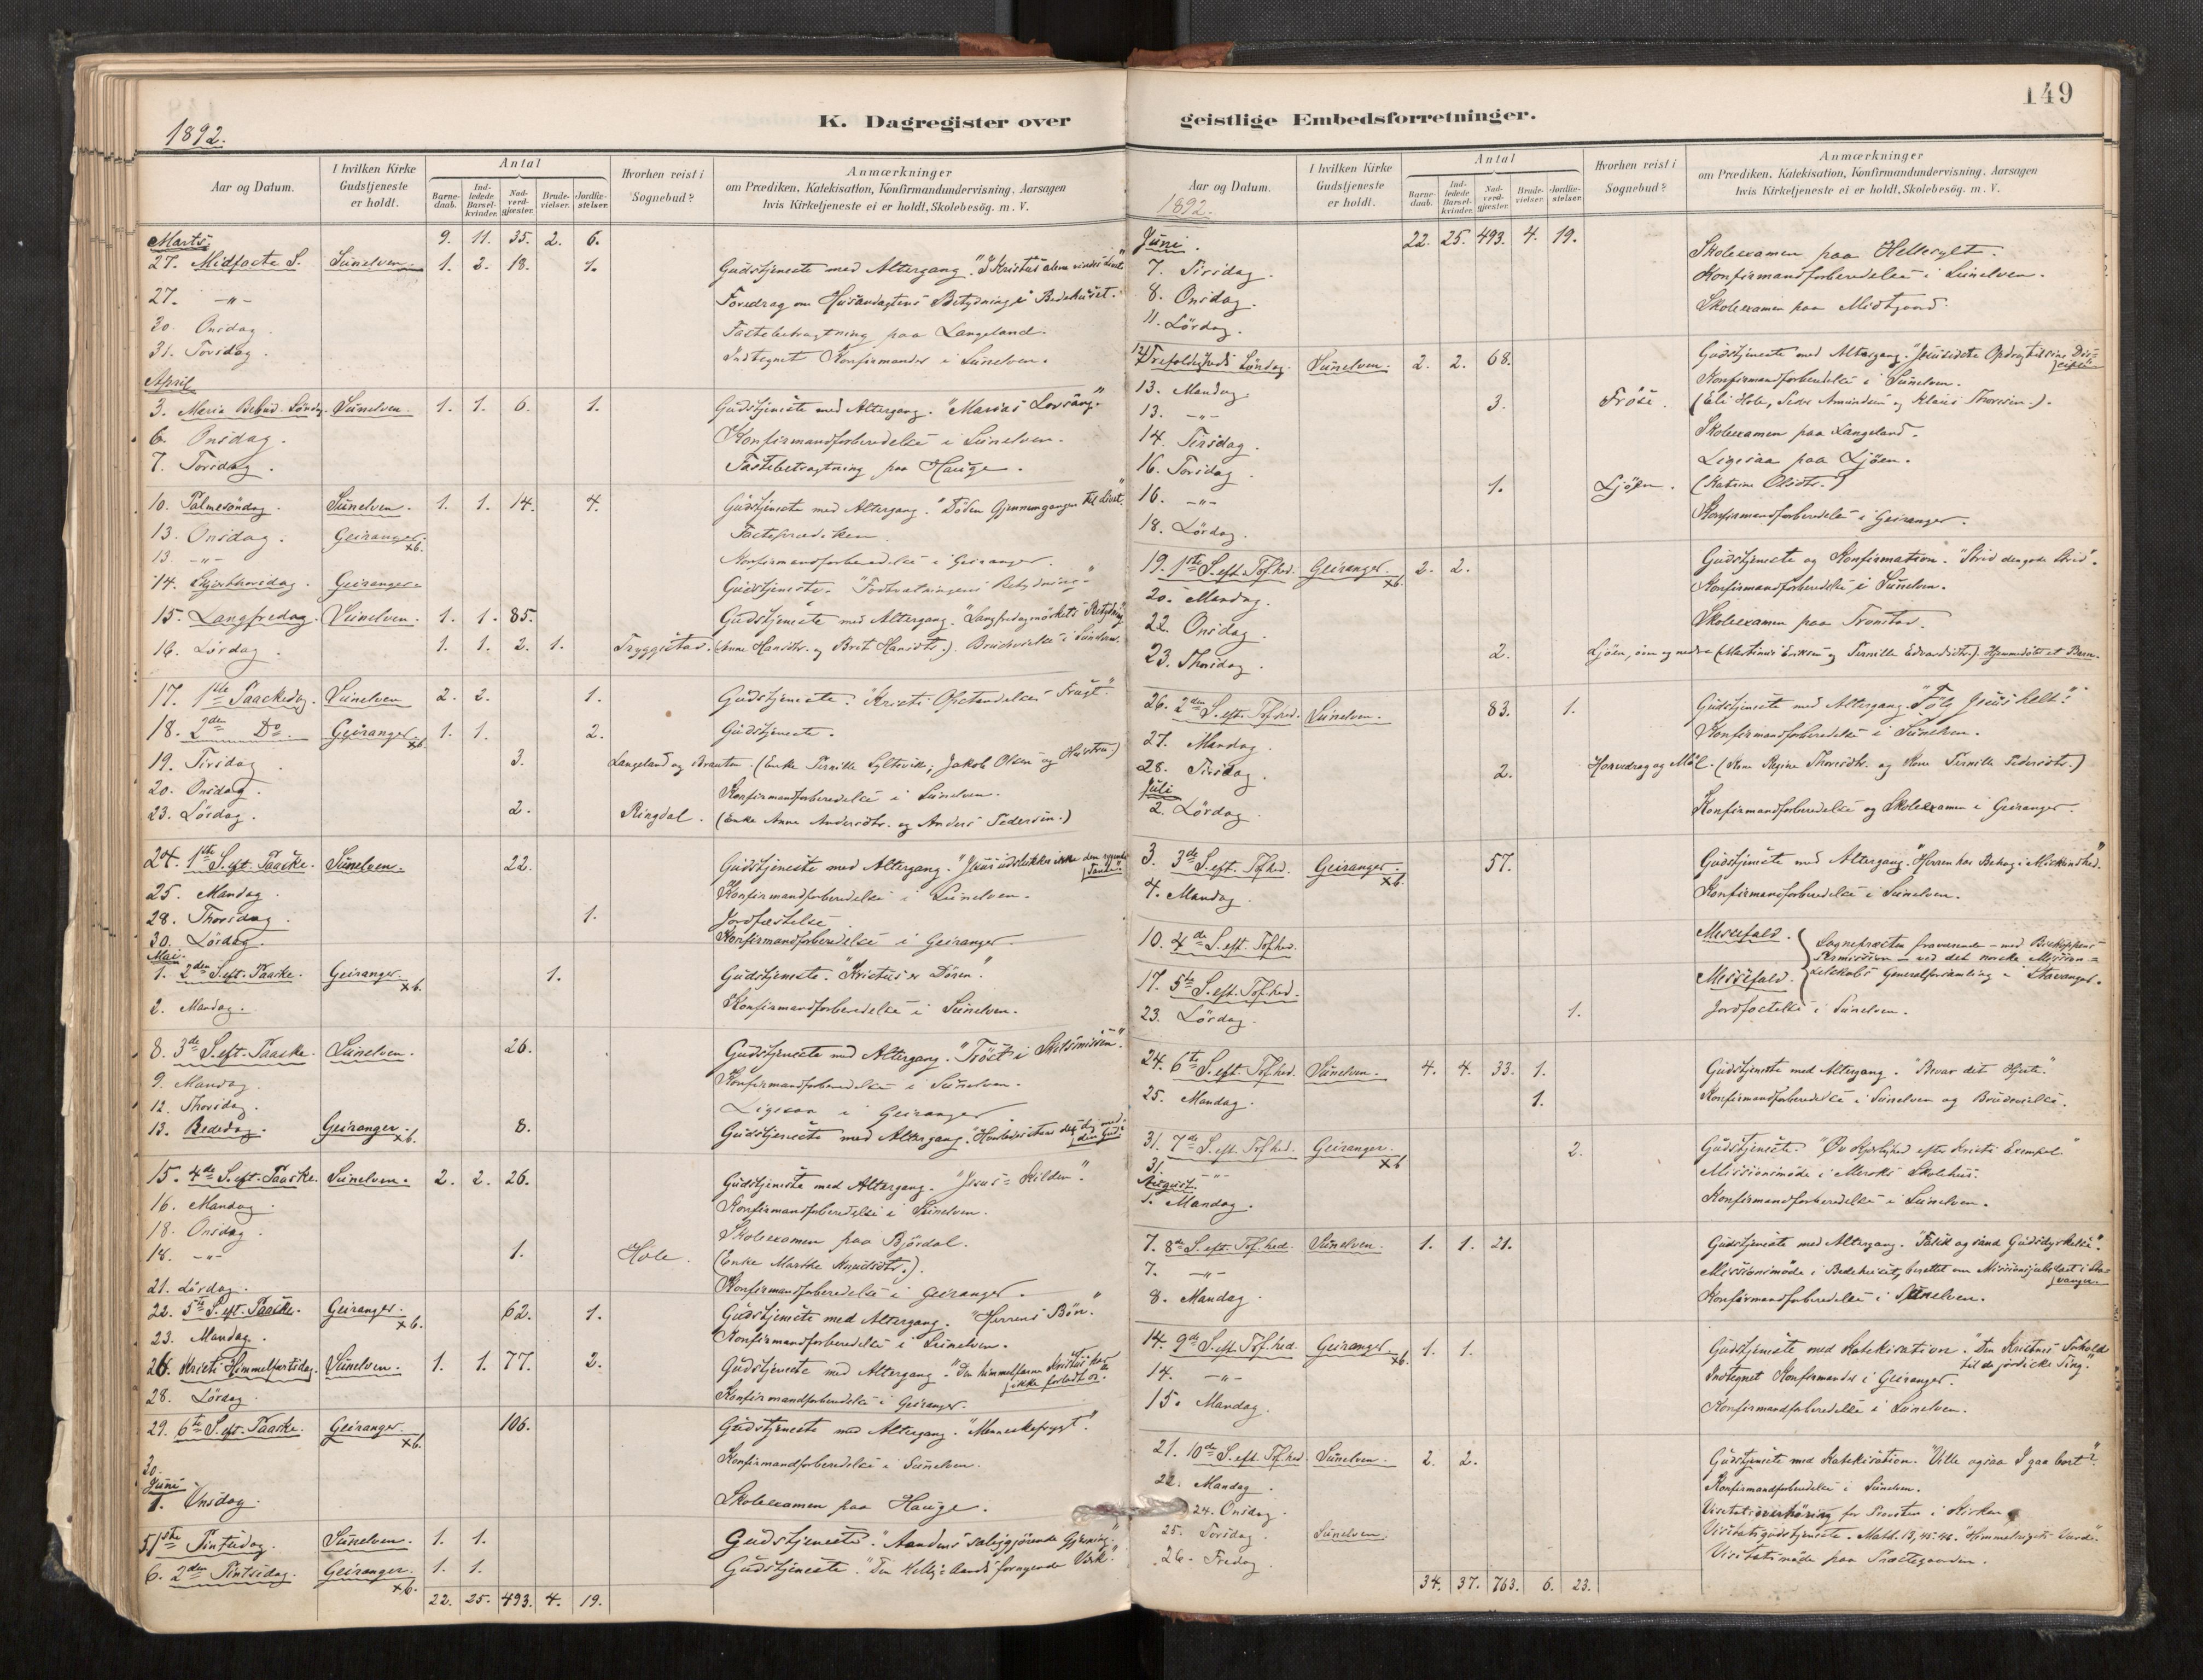 1892.
K. Dagregister over
Aar og Datum.
I hvilken Kirke Gudstjeneste er holdt.
Antal
Barnedaab.
Indledede Barselkvinder.
Nadverdgjæster.
Brudevielser.
Jordfæstelser.
Hvorhen reist i Sognebud?
Anmærkninger
om Prædiken, Katekisation, Konfirmandundervisning. Aarsagen
hvis Kirketjeneste ei er holdt, Skolebesög. m. V.
Marts. 9. 11. 35. 2. 6.
27. Midfaste S. Sunelven. 1. 2. 18. 1. Gudstjeneste med Altergang. "I Kristus alene vindes Livet"
27. -"- Foredrag om Husandagtens Betydning i Bedehuset.
30. Onsdag. Fastebetragtning paa Langeland.
31. Torsdag. Indtegnet Konfirmander i Sunelven.
April
3. Maria Bebud. Søndag. Sunelven. 1. 1. 6. 1. Gudstjeneste med Altergang. "Marias Lovsang."
6. Onsdag. Konfirmandforberedelse i Sunelven.
7. Torsdag. Fastebetragtning paa Hauge.
10. Palmesøndag. Sunelven. 1. 1. 14. 4. Gudstjeneste med Altergang. "Døden Gjennemgangen til Livet."
13. Onsdag. Geiranger. x6. Fasteprædiken.
13. -"- Konfirmandforberedelse i Geiranger.
14. Skjærthorsdag. Geiranger. Gudstjeneste. "Fodtvætningens Betydning."
15. Langfredag. Sunelven. 1. 1. 85. Gudstjeneste med Altergang. "Langfredagmørkets Betydning"
16. Lørdag. 1. 1. 2. 1. Tryggestad. (Anne Hansdtr. og Brit Hansdtr.). Brudevielse i Sunelven.
17. 1ste Paaskedag. Sunelven 2. 2. 1. Gudstjeneste. "Kristi Opstandelses Frugt."
18. 2den Do. Geiranger. x6. 1. 1. 2. Gudstjeneste.
19. Tirsdag 3. Langeland og Brauten. (Enke Pernille Syltevik; Jakob Olsen og Hustru.)
20. Onsdag. Konfirmandforberedelse i Sunelven.
23. Lørdag. 2. Ringdal. (Enke Anne Andersdtr. og Anders Pedersen.)
24. 1ste S. eft. Paaske. Sunelven. 22. Gudstjeneste med Altergang. "Jesus udslukker ikke den rygende Tande."
25. Mandag. Konfirmandforberedelse i Sunelven.
28. Thorsdag. 1. Jordfæstelse
30. Lørdag. Konfirmandforberedelse i Geiranger.
Mai.
1. 2den S. eft. Paaske. Geiranger. x6. 1. Gudstjeneste. "Kristus er Døren."
2. Mandag. Konfirmandforberedelse i Sunelven.
8. 3de S. eft. Paaske. Sunelven. 26. Gudstjeneste med Altergang. "Trøst i Skilsmissen."
9. Mandag. Konfirmandforberedelse i Sunelven.
12. Thorsdag. Ligesaa i Geiranger
13. Bededag. Geiranger. x6. 8. Gudstjeneste med Altergang.
15. 4de S. eft. Paaske. Sunelven. 2. 2. 26. Gudstjeneste med Altergang. "Jesus = Kilden".
16. Mandag. Konfirmandforberedelse i Sunelven.
18. Onsdag. Skoleexamen paa Bjørdal.
18. -"- 1. Hole. (Enke Marthe Knudsdtr.).
21. Lørdag. Konfirmandforberedelse i Geiranger.
22. 5te S. eft. Paaske. Geiranger. x6. 62. 1. Gudstjeneste med Altergang. "Herrens Bøn."
23. Mandag. Konfirmandforberedelse i Sunelven.
26. Kristi Himmelfartsdag. Sunelven. 1. 1. 77. 2. Gudstjeneste med Altergang. "Den himmelfarne Kristus har ikke forladt os."
28. Lørdag Konfirmandforberedelse i Geiranger.
29. 6te S. eft. Paaske. Geiranger. x6. 106. Gudstjeneste med Altergang. "Menneskefrygt."
30. Konfirmandforberedelse i Sunelven.
Juni
1. Onsdag. Skoleexamen paa Hauge.
5 1ste Pintsedag. Sunelven. 1. 1. Gudstjeneste. "Aandens saliggjørende Gjerning."
6. 2den Pintsedag. Geiranger. x6. 1. 1. Gudstjeneste. "Den Hellig Aands fornyende Værk."
22. 25. 493. 4. 19.
149
geistlige Embedsforretninger.
Aar og Datum.
1892.
I hvilken Kirke Gudstjeneste er holdt.
Antal
Barnedaab.
Indledede Barselkvinder.
Nadverdgjæster.
Brudevielser.
Jordfæstelser.
Hvorhen reist i Sognebud?
Anmærkninger
om Prædiken, Katekisation, Konfirmandundervisning. Aarsagen
hvis Kirketjeneste ei er holdt, Skolebesög. m. V.
Juni. 22. 25. 493. 4. 19.
7. Tirsdag. Skoleexamen paa Hellesylt.
8. Onsdag. Konfirmandforberedelse i Sunelven.
11. Lørdag. Skoleexamen paa Midtgaard.
12. Trefoldigheds Søndag. Sunelven. 2. 2. 68. Gudstjeneste med Altergang.
13. Mandag. Konfirmandforberedelse i Sunelven.
13. -"- 3. Frøse. (Eli Hole, Peder Amundsen og Klaus Thoresen.).
14. Tirsdag Skoleexamen paa Langeland.
16. Torsdag. Ligesaa paa Ljøen.
16. -"- 1. Ljøen. (Katrine Olsdtr.)
18. Lørdag. Konfirmandforberedelse i Geiranger.
19. 1ste S. eft. Tref.hed. Geiranger. x6. 2. 2. Gudstjeneste og Konfirmation. "Strid den gode Strid".
20. Mandag. Konfirmandforberedelse i Sunelven.
22. Onsdag. Skoleexamen paa Tronstad.
23. Thorsdag. 2. Ljøen, øvre og nedre (Martinus Eriksen og Pernille Edvardsdtr.). Hjemmedøbt et Barn.
26. 2den S. eft. Tref.hed. Sunelven. 83. 1. Gudstjeneste med Altergang. "Følg Jesus helt."
27. Mandag. Konfirmandforberedelse i Sunelven.
28. Tirsdag. 2. Horvedrag og Møl. (Kone Regine Thoresdtr. og Kone Pernille Pedersdtr.)
Juli
2. Lørdag. Konfirmandforberedelse og Skoleexamen i Geiranger.
3. 3de S. eft. Tref.hed. Geiranger. x6. 57. Gudstjeneste med Altergang. "Herren har Behag i Miskundhed."
4. Mandag. Konfirmandforberedelse i Sunelven.
10. 4de S. eft. Tref.hed. Messefald. Sognepræsten fraværende - med Biskoppens
Permission - ved det norske Missions=
17. 5te S. eft. Tref.hed. Messefald. selskabs Generalforsamling i Stavanger.
23. Lørdag. 1. Jordfæstelse i Sunelven.
24. 6te S. eft. Tref.hed. Sunelven. 4. 4. 33. 1. Gudstjeneste med Altergang. "Bevar dit Hjerte."
25. Mandag. 1. Konfirmandforberedelse i Sunelven og Brudevielse.
31. 7de S. eft. Tref.hed. Geiranger. x6 2. Gudstjeneste. "Øv Kjærlighed efter Kristi Exempel"
31. -"- Missionsmøde i Meroks Skolehus.
August.
1. Mandag. Konfirmandforberedelse i Sunelven.
7. 8de S. eft. Tref.hed. Sunelven. 1. 1. 21. Gudstjeneste med Altergang. "Falsk og sand Gudsdyrkelse."
7. -"- Missionsmøde i Bedehuset, berettet om Missionsjubelfæst i Stavanger
8. Mandag. Konfirmandforberedelse i Sunelven.
14. 9de S. eft. Tref.hed. Geiranger. x6. 1. 1. Gudstjeneste med Katekisation. "Den Kristnes Forhold til de jordiske Ting."
14. -"- Indtegnet Konfirmander i Geiranger.
15. Mandag. Konfirmandforberedelse i Sunelven.
21. 10de S. eft. Tref.hed. Sunelven. 2. 2. Gudstjeneste med Katekisation. "Ville ogsaa I gaa bort?"
22. Mandag. Konfirmandforberedelse i Sunelven.
24. Onsdag. Visitatsoverhøring for Provsten i Kirken
25. Torsdag. Sunelven. Visitatsgudstjeneste. Math. 13, 45-46. "Himmelrigets Værdi."
26. Fredag. Visitatsmøde paa Præstegaarden.
34. 37. 763. 6. 23.